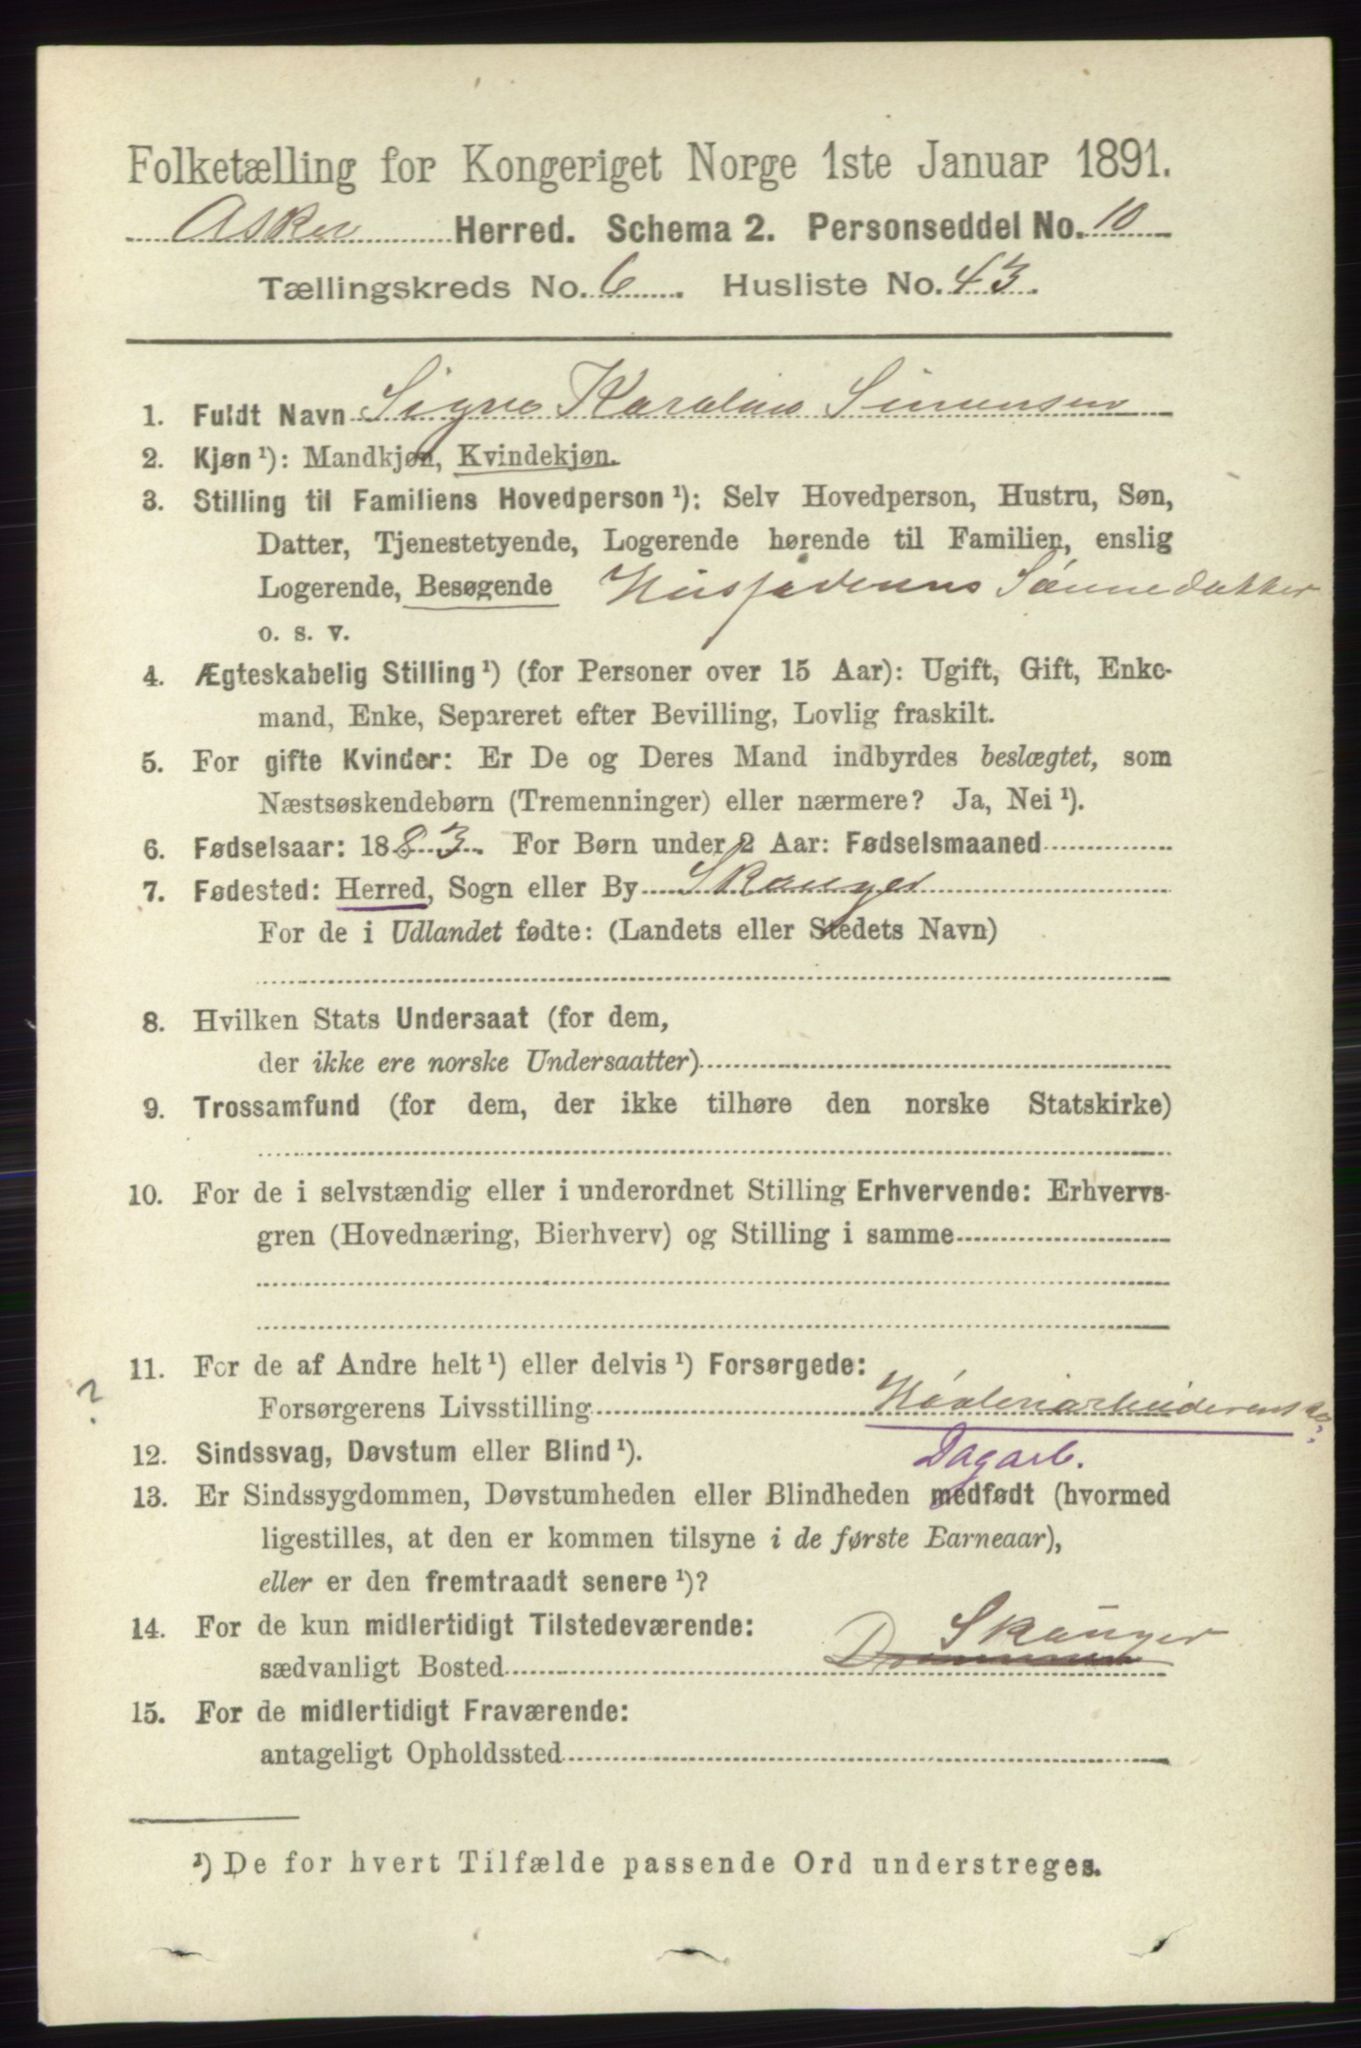 Folketælling for Kongeriget Norge 1ste Januar 1891.
Asker Herred. Schema 2. Personseddel No. 10
Tællingskreds No. 6. Husliste No. 43.
1. Fuldt Navn Signe Karoline Simensen
2. Kjøn ¹): Mandkjøn, Kvindekjøn.
3. Stilling til Familiens Hovedperson ¹): Selv Hovedperson, Hustru, Søn,
Datter, Tjenestetyende, Logerende hørende til Familien, enslig
Logerende, Besøgende Husfaderens Sønnedatter
o. s. v.
4. Ægteskabelig Stilling ¹) (for Personer over 15 Aar): Ugift, Gift, Enke-
mand, Enke, Separeret efter Bevilling, Lovlig fraskilt.
5. For gifte Kvinder: Er De og Deres Mand indbyrdes beslægtet, som
Næstsøskendebørn (Tremenninger) eller nærmere? Ja, Nei ¹).
6. Fødselsaar: 1883. For Børn under 2 Aar: Fødselsmaaned
7. Fødested: Herred, Sogn eller By Skauger
For de i Udlandet fødte: (Landets eller Stedets Navn)
8. Hvilken Stats Undersaat (for dem,
der ikke ere norske Undersaatter)
9. Trossamfund (for dem, der ikke tilhøre den norske Statskirke)
10. For de i selvstændig eller i underordnet Stilling Erhvervende: Erhvervs-
gren (Hovednæring, Bierhverv) og Stilling i samme
11. For de af Andre helt ¹) eller delvis ¹) Forsørgede:
?
Forsørgerens Livsstilling
12. Sindssvag, Døvstum eller Blind ¹). Dagarb.
13. Er Sindssygdommen, Døvstumheden eller Blindheden medfødt (hvormed
ligestilles, at den er kommen tilsyne i de første Barneaar),
eller er den fremtraadt senere ¹)?
14. For de kun midlertidigt Tilstedeværende: Skauger
sædvanligt Bosted
15. For de midlertidigt Fraværende:
antageligt Opholdssted
¹) De for hvert Tilfælde passende Ord understreges.